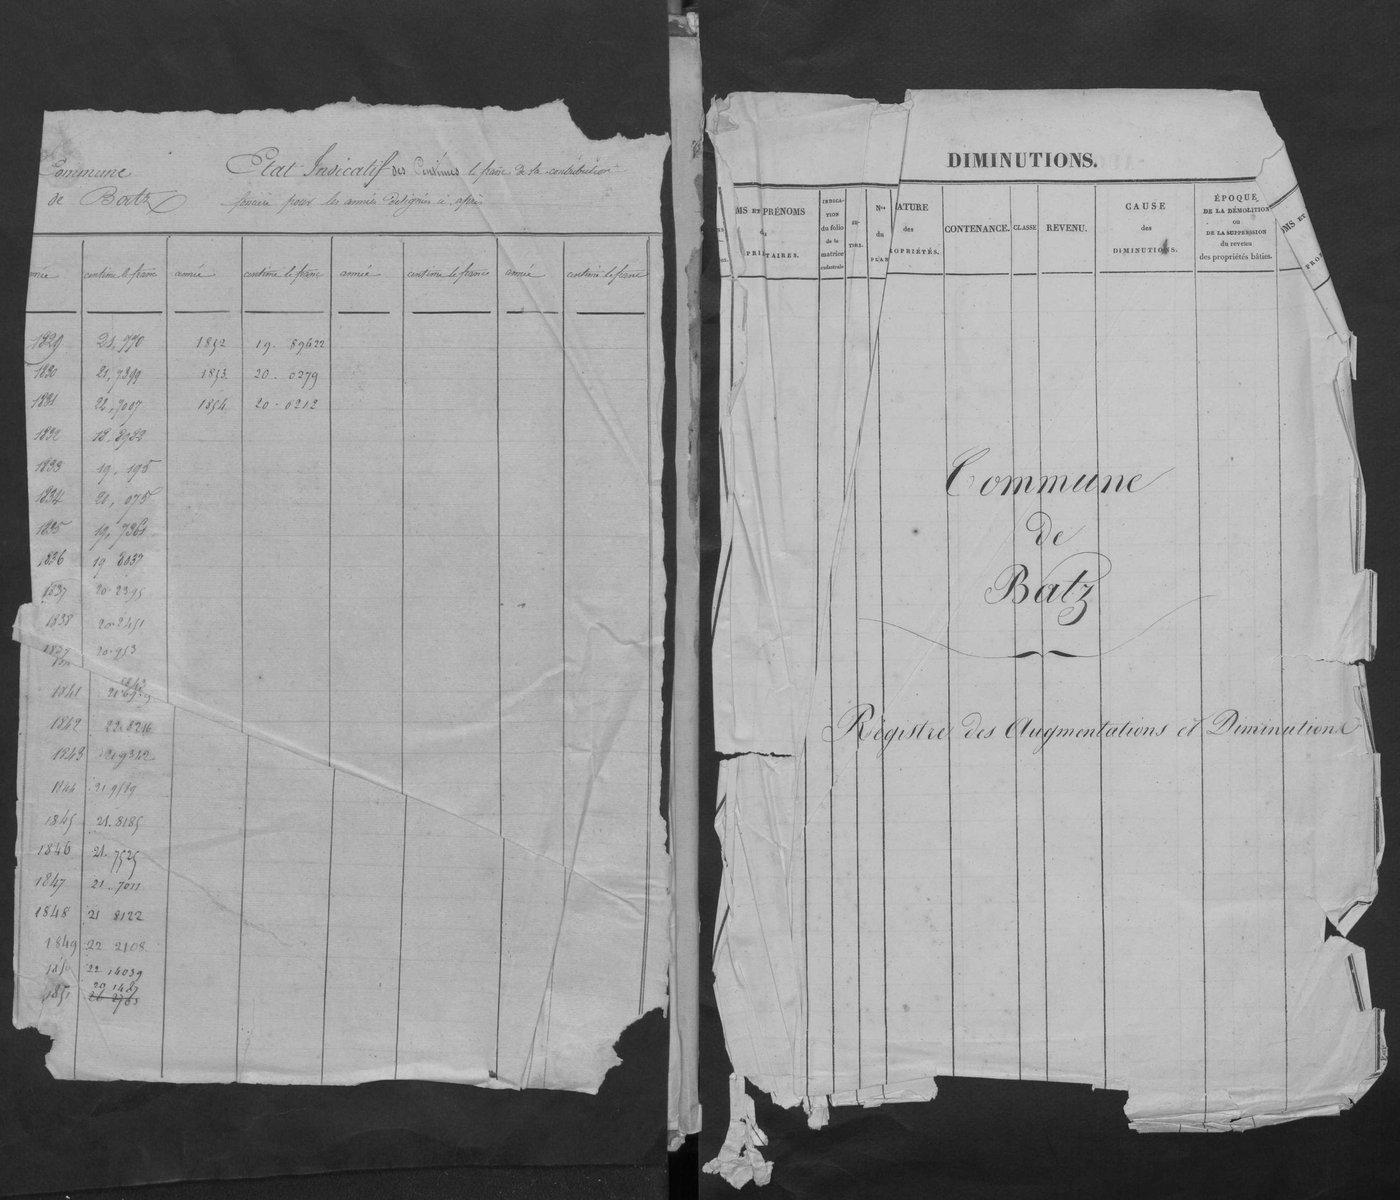 Commune
de Batz
Etat Indicatif des Centimes le franc de la contribution
foncière pour les années désignées ci après
année centime le franc année centime le franc année centime le franc année centime le franc
1829 21,770 1852 19. 89622
1830 21,7399 1853 20. 0279
1831 22,7007 1854 20. 0212
1832 18. 8932
1833 19, 195
1834 20, 075
1835 19, 7361
1836 19 8037
1837 20. 2395
1838 20. 2451
1839 20. 953
1841
1842 22.8216
1843 21 9342
1844 21 9589
1845 21. 8185
1846 21. 7525
1847 21. 7011
1848 21 8122
1849 22 2108
1850 22 14039
1851 20 1487
26 2763
DIMINUTIONS.
MS ET PRÉNOMS
INDICATION
du folio
de la
matrice
cadastrale
Nos
du
PLAN
NATURE
des
PROPRIÉTÉS.
CONTENANCE.
CLASSE
REVENU.
CAUSE
des
DIMINUTIONS.
ÉPOQUE
DE LA DÉMOLITION
ou
DE LA SUPPRESSION
du revenu
des propriétés bâties.
Commune
de
Batz
Régistre des Augmentations et Diminutions